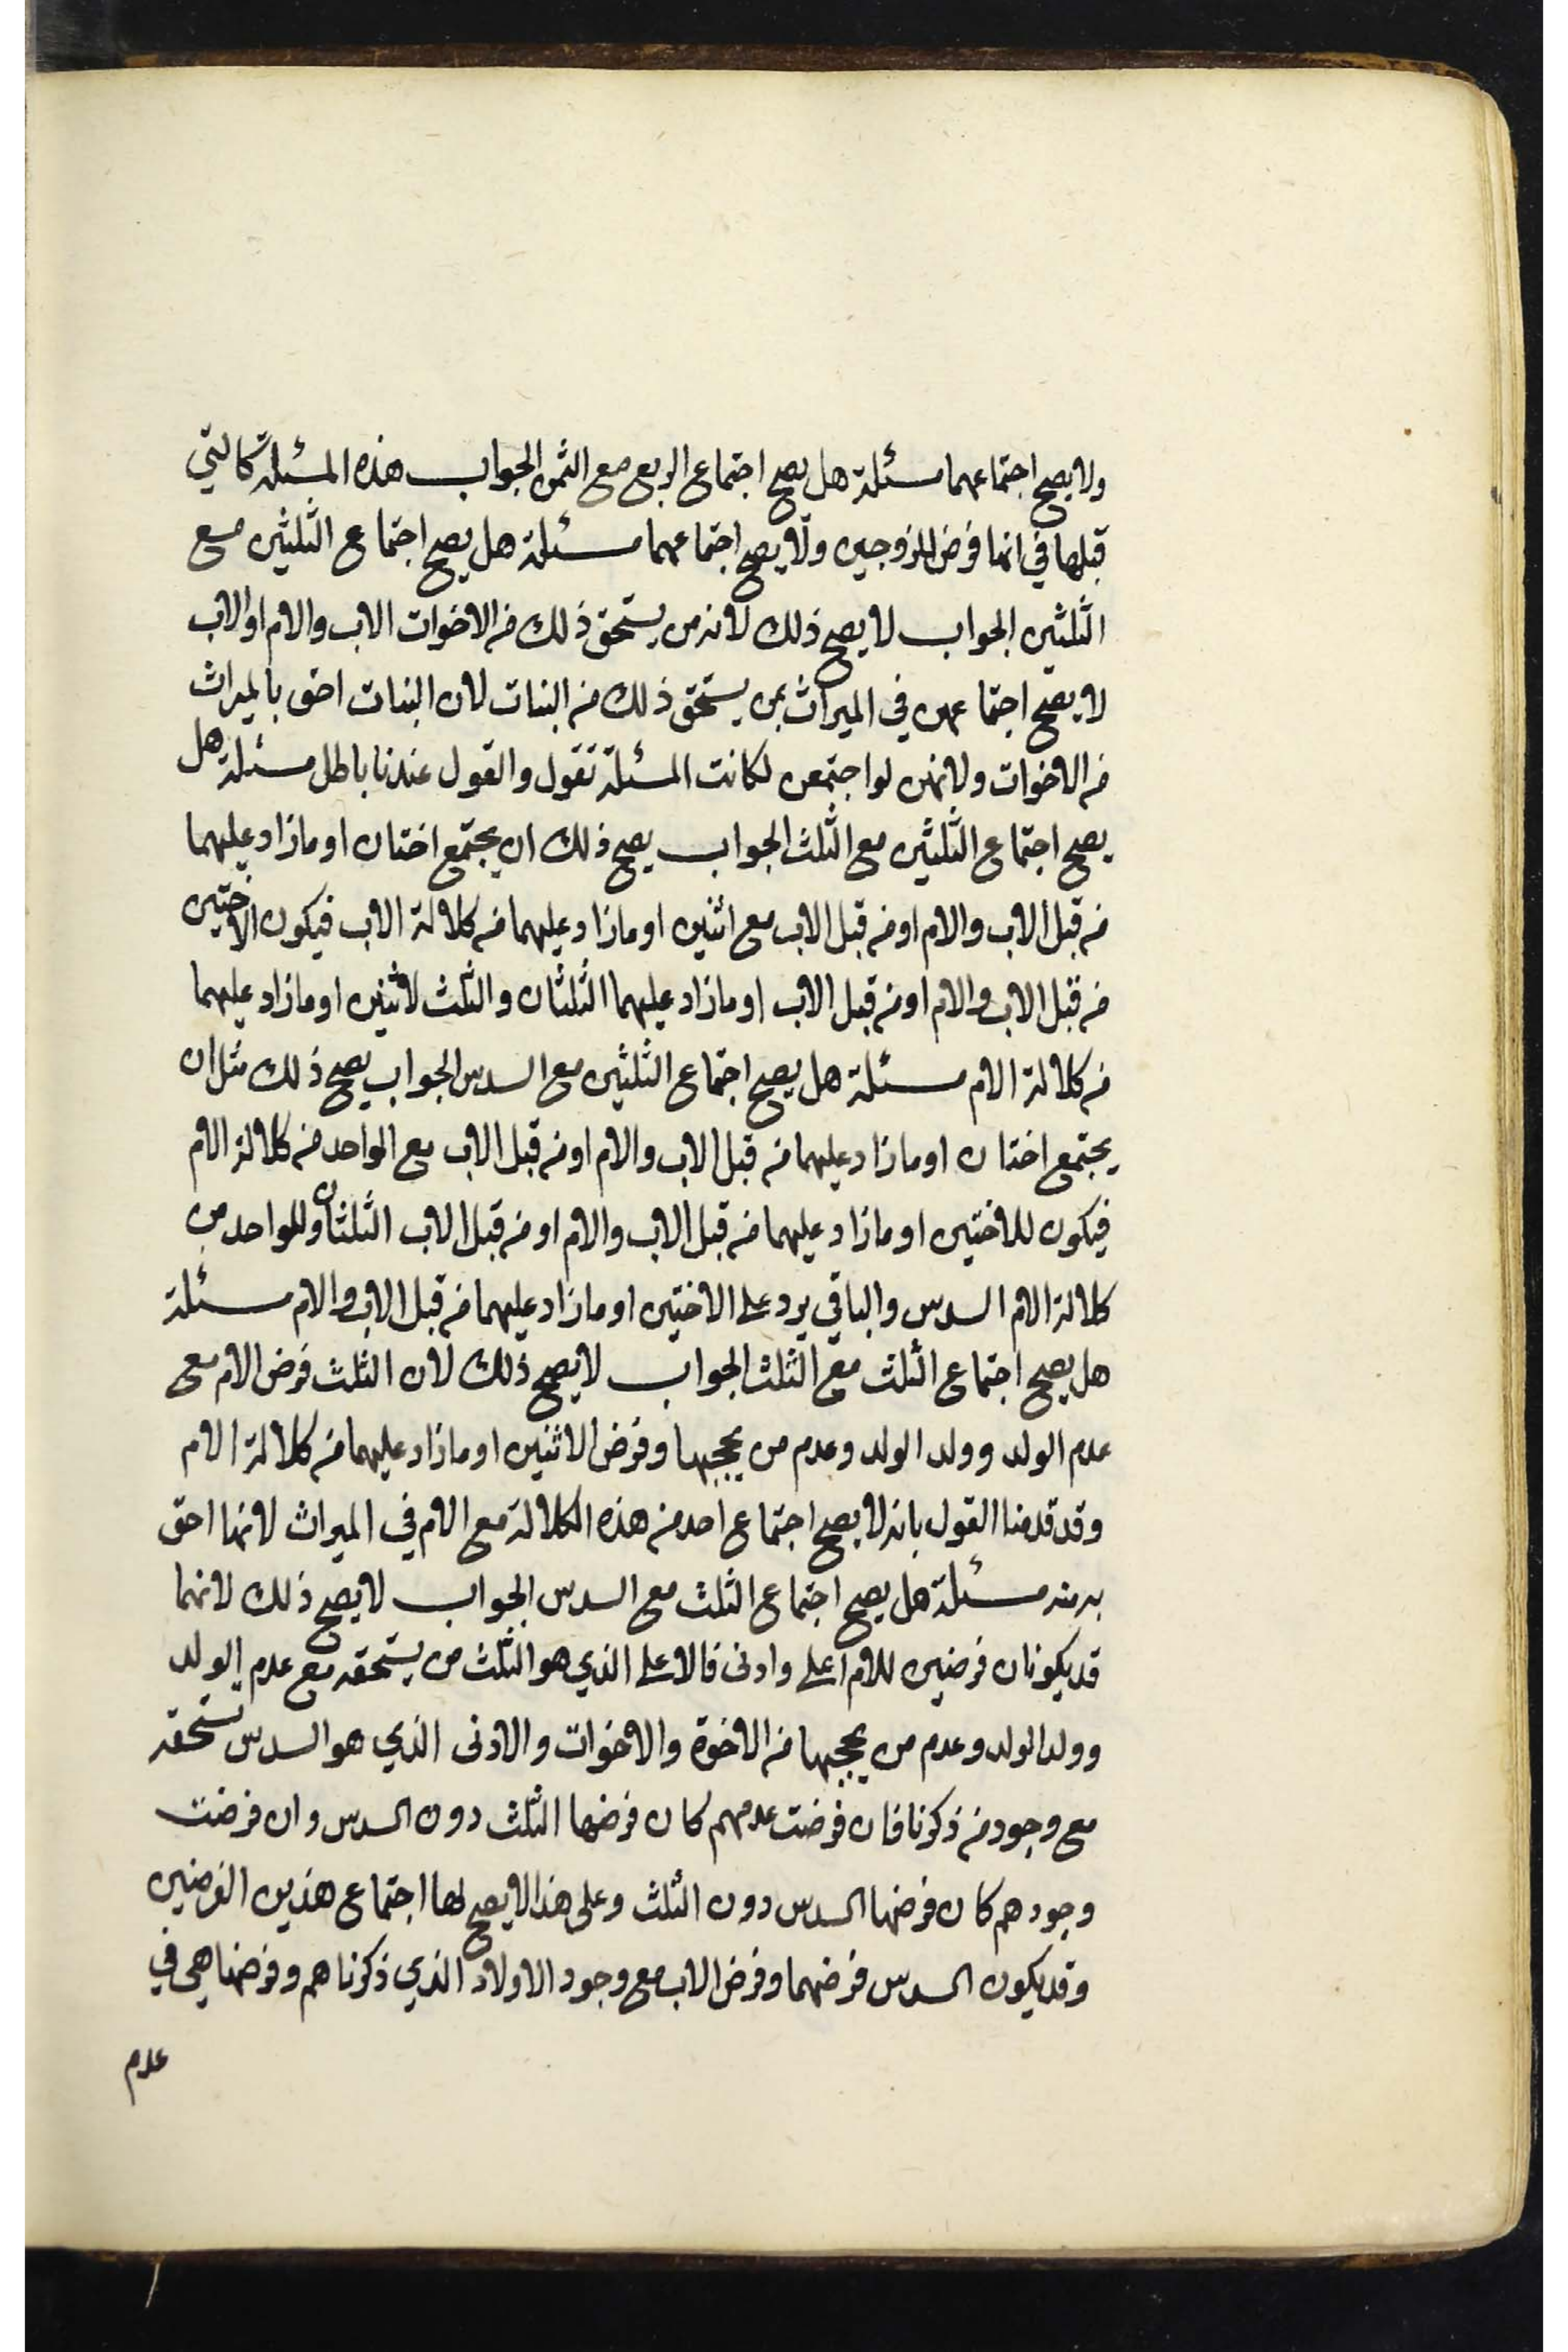 ولا يصح اجتماعهما مسئلة هل يصح اجتماع الربع مع الثمن الجواب هذه المسئلة كالتي
قبلها في انها فرض للزوجين ولا يصح اجتماعهما مسئلة هل يصح اجتماع الثلثين مع
الثلثين الجواب لا يصح ذلك لانه من يستحق ذلك من الاخوات الاب والام او الاب
لا يصح اجتماعهن في الميراث بمن يستحق ذلك من البنات لان البنات احق بالميراث
من الاخوات ولانهن لو اجتمعن لكانت المسئلة تقول والقول عندنا باطل مسئلة هل
يصح اجتماع الثلثين مع الثلث الجواب يصح ذلك ان يجتمع اختان او مازاد عليهما
من قبل الاب والام او من قبل الاب مع اثنين او مازاد عليهما من كلالة الاب فيكون الاختين
من قبل الاب والام او من قبل الاب او مازاد عليهما الثلثان والثلث لاثنين او مازاد عليهما
من كلالة الام مسئلة هل يصح اجتماع الثلثين مع السدس الجواب يصح ذلك مثل ان
يجتمع اختان او مازاد عليهما من قبل الاب والام او من قبل الاب مع الواحد من كلالة الام
فيكون للاختين او مازاد عليهما من قبل الاب والام او من قبل الاب الثلثان وللواحد من
كلالة الام السدس والباقي يرد على الاختين او مازاد عليهما من قبل الاب والام مسئلة
هل يصح اجتماع الثلث مع الثلث الجواب لا يصح ذلك لان الثلث فرض الام مع
عدم الولد وولد الولد وعدم من يحجبها وفرض الاثنين او مازاد عليهما من كلالة الام
وقد قدمنا القول بانه لا يصح اجتماع احد من هذه الكلالة مع الام في الميراث لانها احق
به منه مسئلة هل يصح اجتماع الثلث مع السدس الجواب لا يصح ذلك لانهما
قد يكونان فرضين للام اعلى وادنى فالاعلى الذي هو الثلث من يستحقه مع عدم الولد
وولد الولد وعدم من يحجبها من الاخوة والاخوات والادنى الذي هو السدس تستحقه
مع وجود من ذكرنا فان فرضت عدمهم كان فرضها الثلث دون السدس وان فرضت
وجودهم كان فرضها السدس دون الثلث وعلى هذا لا يصح لها اجتماع هذين الفرضين
وقد يكون السدس فرضهما وفرض الاب مع وجود الاولاد الذي ذكرناهم وفرضها هي في
عدم